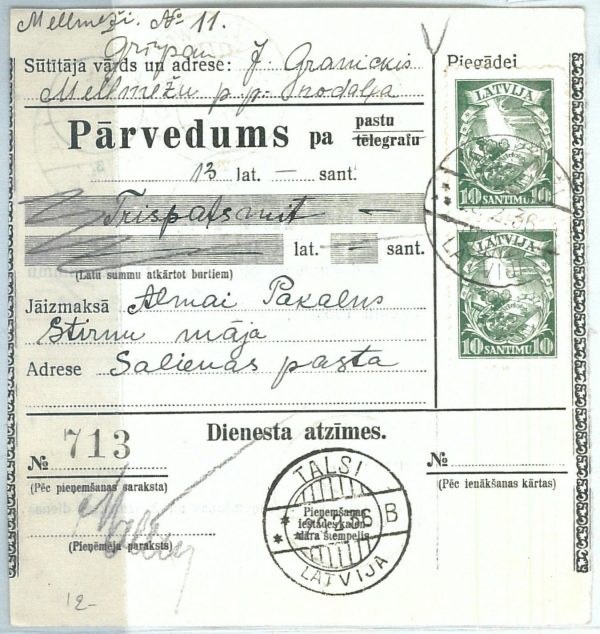 Mellmeži. № 11.
Sūtītāja vārds un adrese: J. Granickis
Mellmežu p.p. nodaļa
Piegādei
Pārvedums pa pastu
telegrafu
13 lat. — sant.
Trīspatsmit —
lat. — sant.
(Latu summu atkārtot burtiem)
Jāizmaksā Almai Pakalns
Stirnu māja
Adrese Salienas pasta
LATVIJA
10 SANTIMU 10
LATVIJA
10 SANTIMU 10
2.36
LATVIJA
713
Dienesta atzīmes.
№
(Pēc pieņemšanas saraksta)
(Pieņēmēja paraksts)
TALSI
Pieņemšanas
iestādes kalen-
dāra tempelis
2.36 B
LATVIJA
№
(Pēc ienākšanas kārtas)
12-